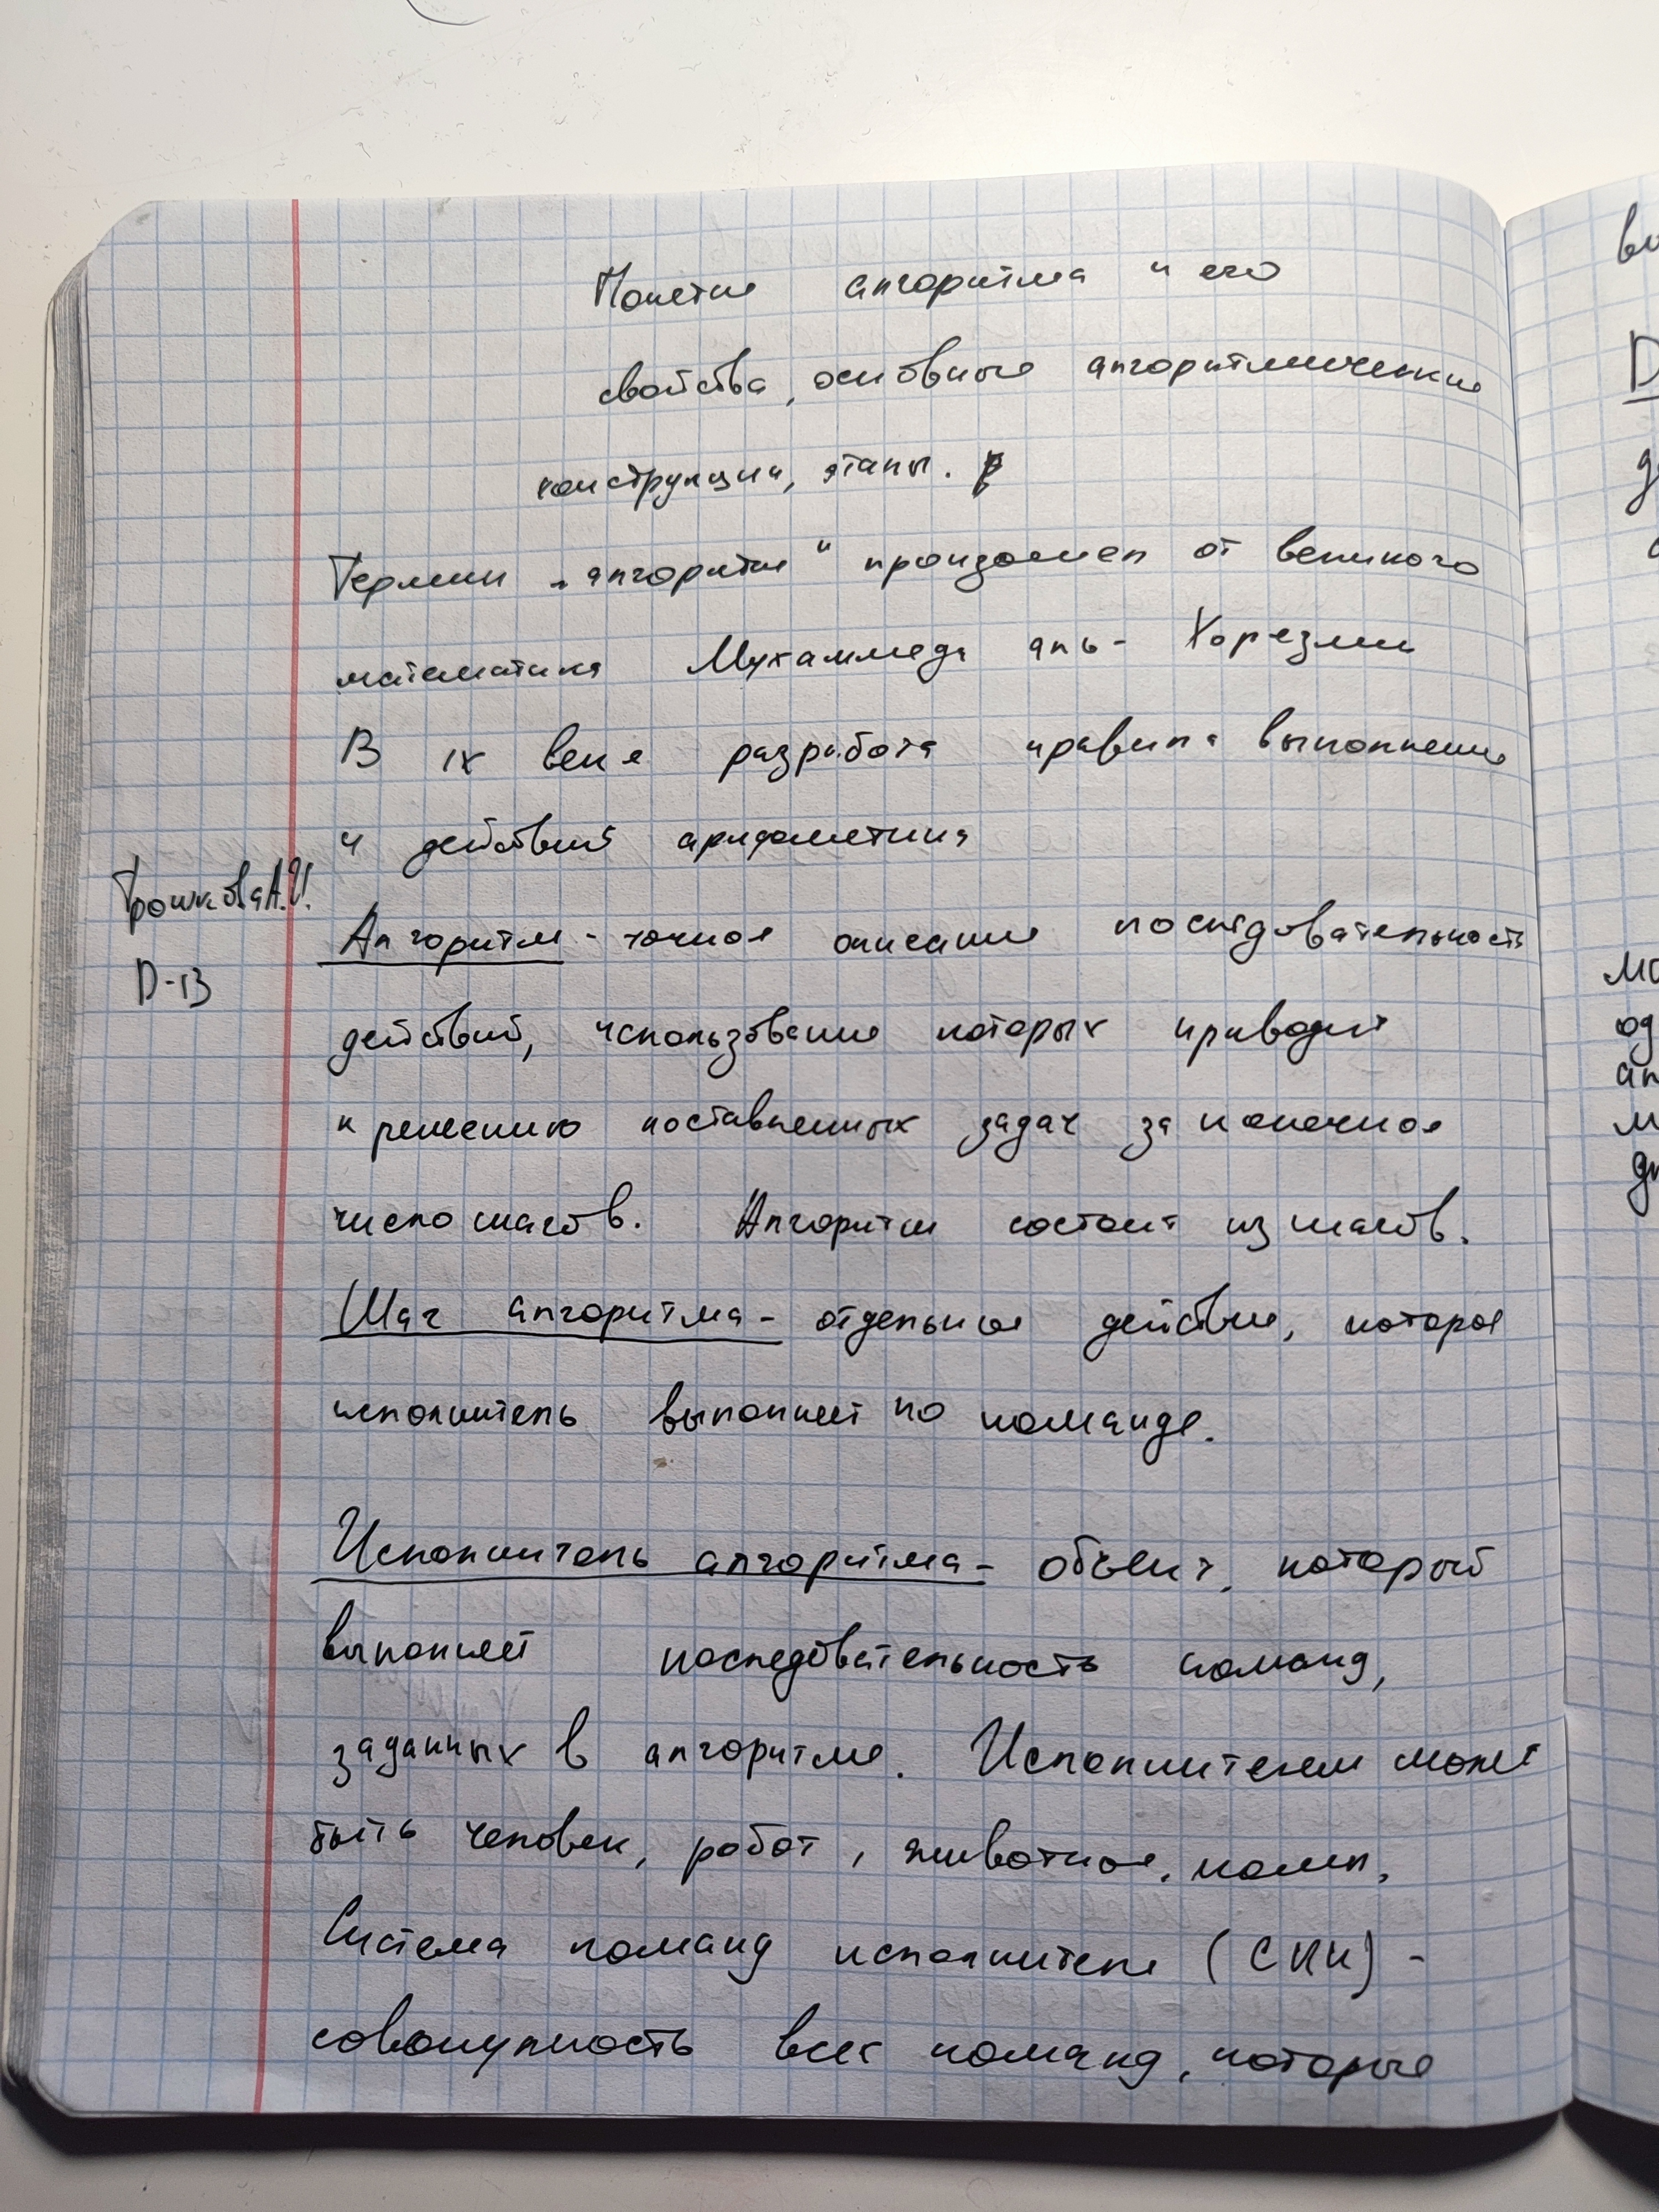 Понятие алгоритма и его
свойства, основные алгоритмические
конструкции, этапы.
Термин „алгоритм“ произошел от великого
математика Мухаммеда аль- Хорезми
В IX веке разработа правила выполнение
и действий арифметика
Трошкова А.И.
D-13
Алгоритм - точное описание последовательность
действий, использование которых приводит
к решению поставленных задач за конечное
число шагов. Алгоритм состоит из шагов.
Шаг алгоритма - отдельное действие, которое
исполнитель выполняет по команде.
Исполнитель алгоритма - объект, который
выполняет последовательность команд,
заданных в алгоритме. Исполнителем может
быть человек, робот, животное, комп.
Система команд исполнителя (СКИ) -
совокупность всех команд, которые
D